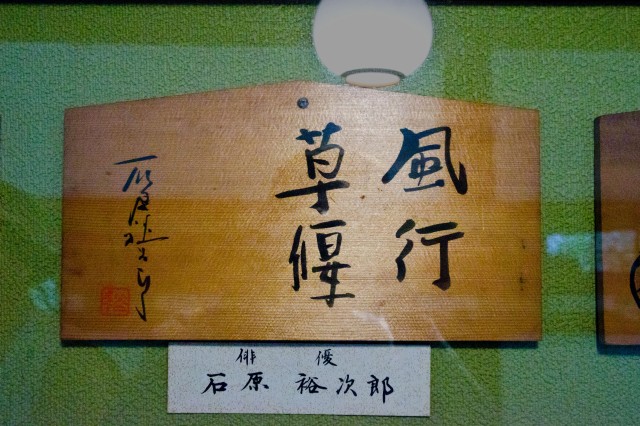 風行
草偃
石原裕次郎
俳優
石原 裕次郎